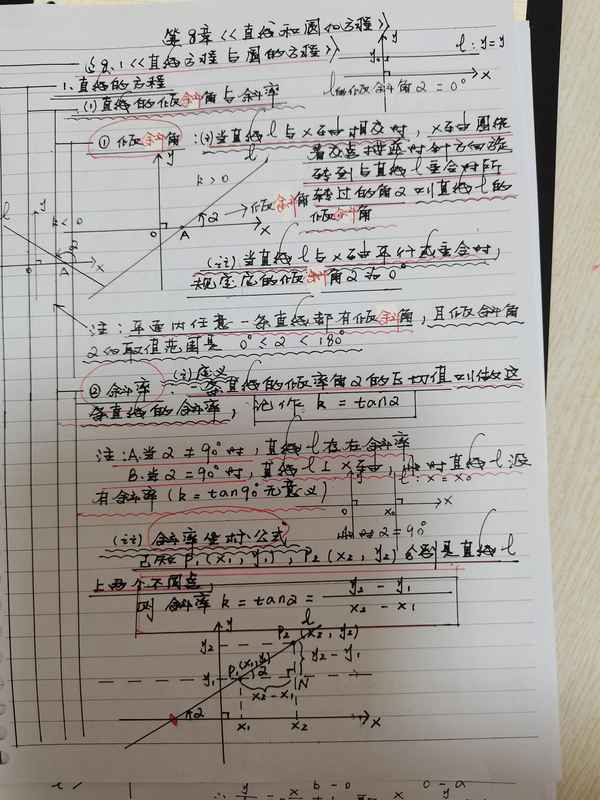 第8章《直线和圆的方程》
§8.1《直线方程与圆的方程》
y
l：y=y₀
y₀
x
1.直线的方程
l的倾斜角2=0°
(1)直线的倾斜角与斜率
①倾斜角：(i)当直线l与x轴相交时，x轴围绕
着交点按逆时针方向旋
转到与直线l重合时所
转过的角2叫直线l的
倾斜角
y
l
k>0
2→倾斜角
0
A
x
l
y
k<0
2
0
A
x
(ii)当直线l与x轴平行或重合时，
规定它的倾斜角2为0°
注：平面内任意一条直线都有倾斜角，且倾斜角
2的取值范围是 0°≤2<180°
②斜率：(i)定义
一条直线的倾率角2的正切值叫做这
条直线的斜率，记作 k=tan2
注：A.当2≠90°时，直线l存在斜率
B.当2=90°时，直线l⊥x轴，此时直线l没
有斜率(k=tan90°无意义)
l：x=x₀
0
x₀
x
此时2=90°
(ii)斜率坐标公式
已知P₁(x₁,y₁)，P₂(x₂,y₂)分别是直线l
上两个不同点，
则 斜率k=tan2= y₂-y₁
x₂-x₁
y
l
P₂(x₂,y₂)
y₂
y₂-y₁
P₁(x₁,y₁)
2
y₁
N
x₂-x₁
2
x₁
x₂
x